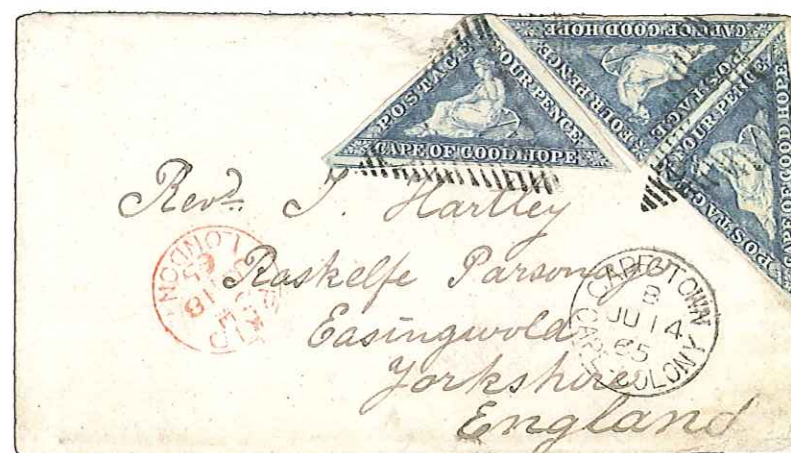 POSTAGE FOUR PENCE
CAPE OF GOOD HOPE
CAPE OF GOOD HOPE
FOUR PENCE
POSTAGE
FOUR PENCE
POSTAGE
CAPE OF GOOD HOPE
Revd. J. Hartley
Raskelfe Parsonage
Easingwold
Yorkshire
England
LONDON
65
CAPE TOWN
B
JU 14
65
CAPE COLONY